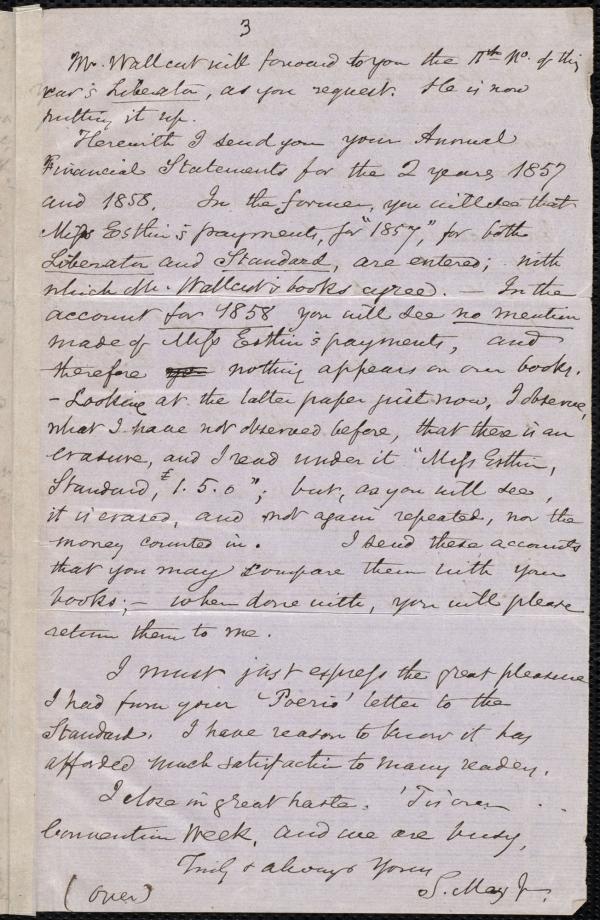 3
Mr. Wallcut will forward to you the 11th No. of this
year's Liberator, as you request. He is now
putting it up.
Herewith I send you your Annual
Financial Statements for the 2 years 1857
and 1858. In the former, you will see that
Miss Estlin's payments, for "1857," for both
Liberator and Standard, are entered; with
which Mr. Wallcut's books agree. – In the
account for 1858 you will see no mention
made of Miss Estlin's payments, and
therefore nothing appears on our books.
– Looking at the latter paper just now, I observe,
what I have not observed before, that there is an
erasure, and I read under it "Miss Estlin,
Standard, £1.5.0"; but, as you will see,
it is erased, and not again repeated, nor the
money counted in. I send these accounts
that you may compare them with your
books; – when done with, you will please
return them to me.
I must just express the great pleasure
I had from your 'Poerio' letter to the
Standard. I have reason to know it has
afforded much satisfaction to many readers.
I close in great haste. 'Tis our
Convention Week, and we are busy.
Truly & always Yours
S. May Jr.
(over)